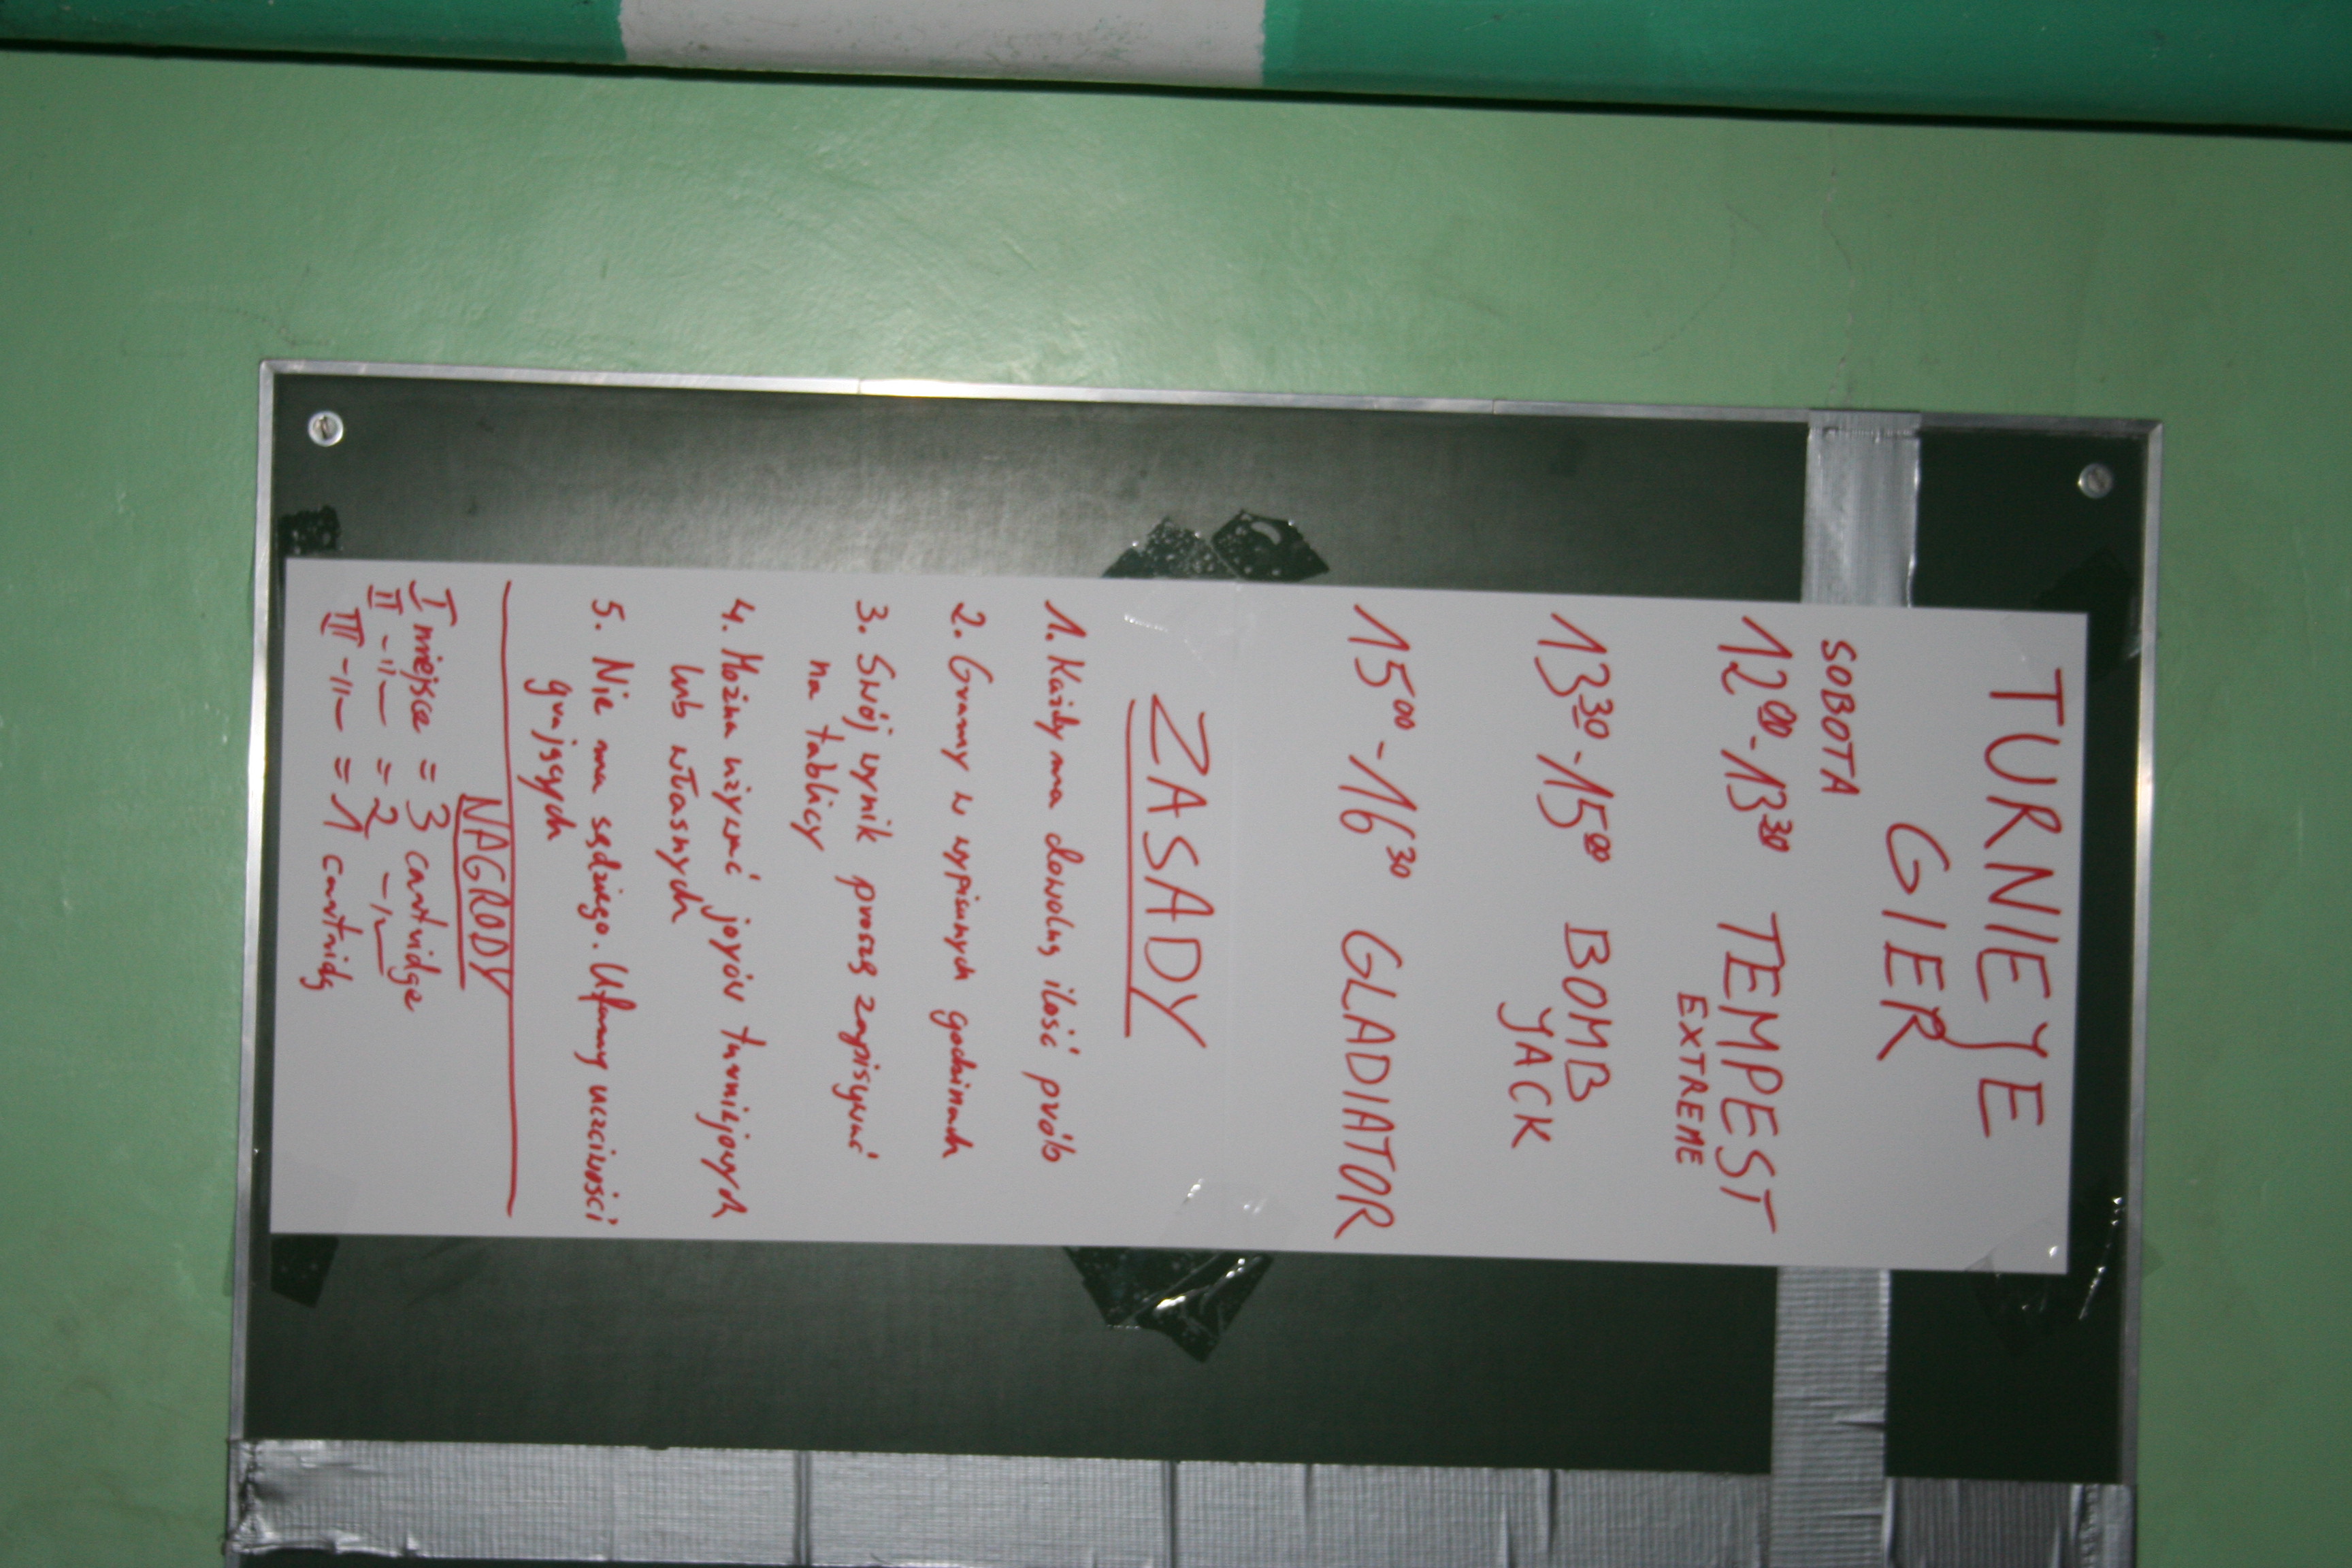 TURNIEJE
GIER
SOBOTA
12⁰⁰-13³⁰ TEMPEST
EXTREME
13³⁰-15⁰⁰ BOMB
JACK
15⁰⁰-16³⁰ GLADIATOR
ZASADY
1. Każdy ma dowolną ilość prób
2. Gramy w wypisanych godzinach
3. Swój wynik proszę zapisywać
na tablicy
4. Można używać joyów turniejowych
lub własnych
5. Nie ma sędziego. Ufamy uczciwości
grających
NAGRODY
I miejsce = 3 cartridge
II -"- = 2 -"-
III -"- = 1 cartridg